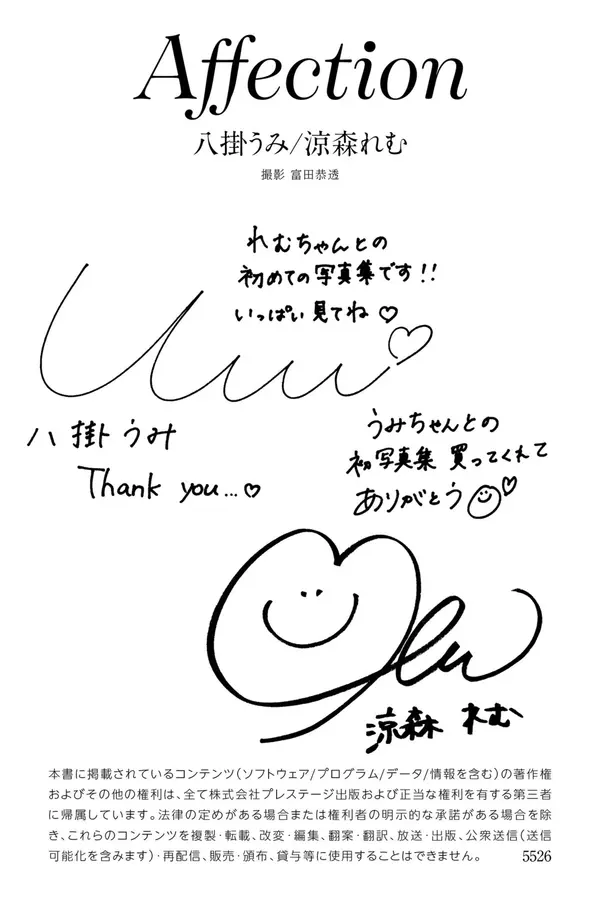 Affection
八掛うみ/涼森れむ
撮影 富田恭透
れむちゃんとの
初めての写真集です!!
いっぱい見てね♡
Umi♡
八掛うみ
Thank you...♡
うみちゃんとの
初写真集 買ってくれて
ありがとう☺♡
涼森 れむ
本書に掲載されているコンテンツ(ソフトウェア/プログラム/データ/情報を含む)の著作権
およびその他の権利は、全て株式会社プレステージ出版および正当な権利を有する第三者
に帰属しています。法律の定めがある場合または権利者の明示的な承諾がある場合を除
き、これらのコンテンツを複製・転載、改変・編集、翻案・翻訳、放送・出版、公衆送信(送信
可能化を含みます)・再配信、販売・頒布、貸与等に使用することはできません。 5526